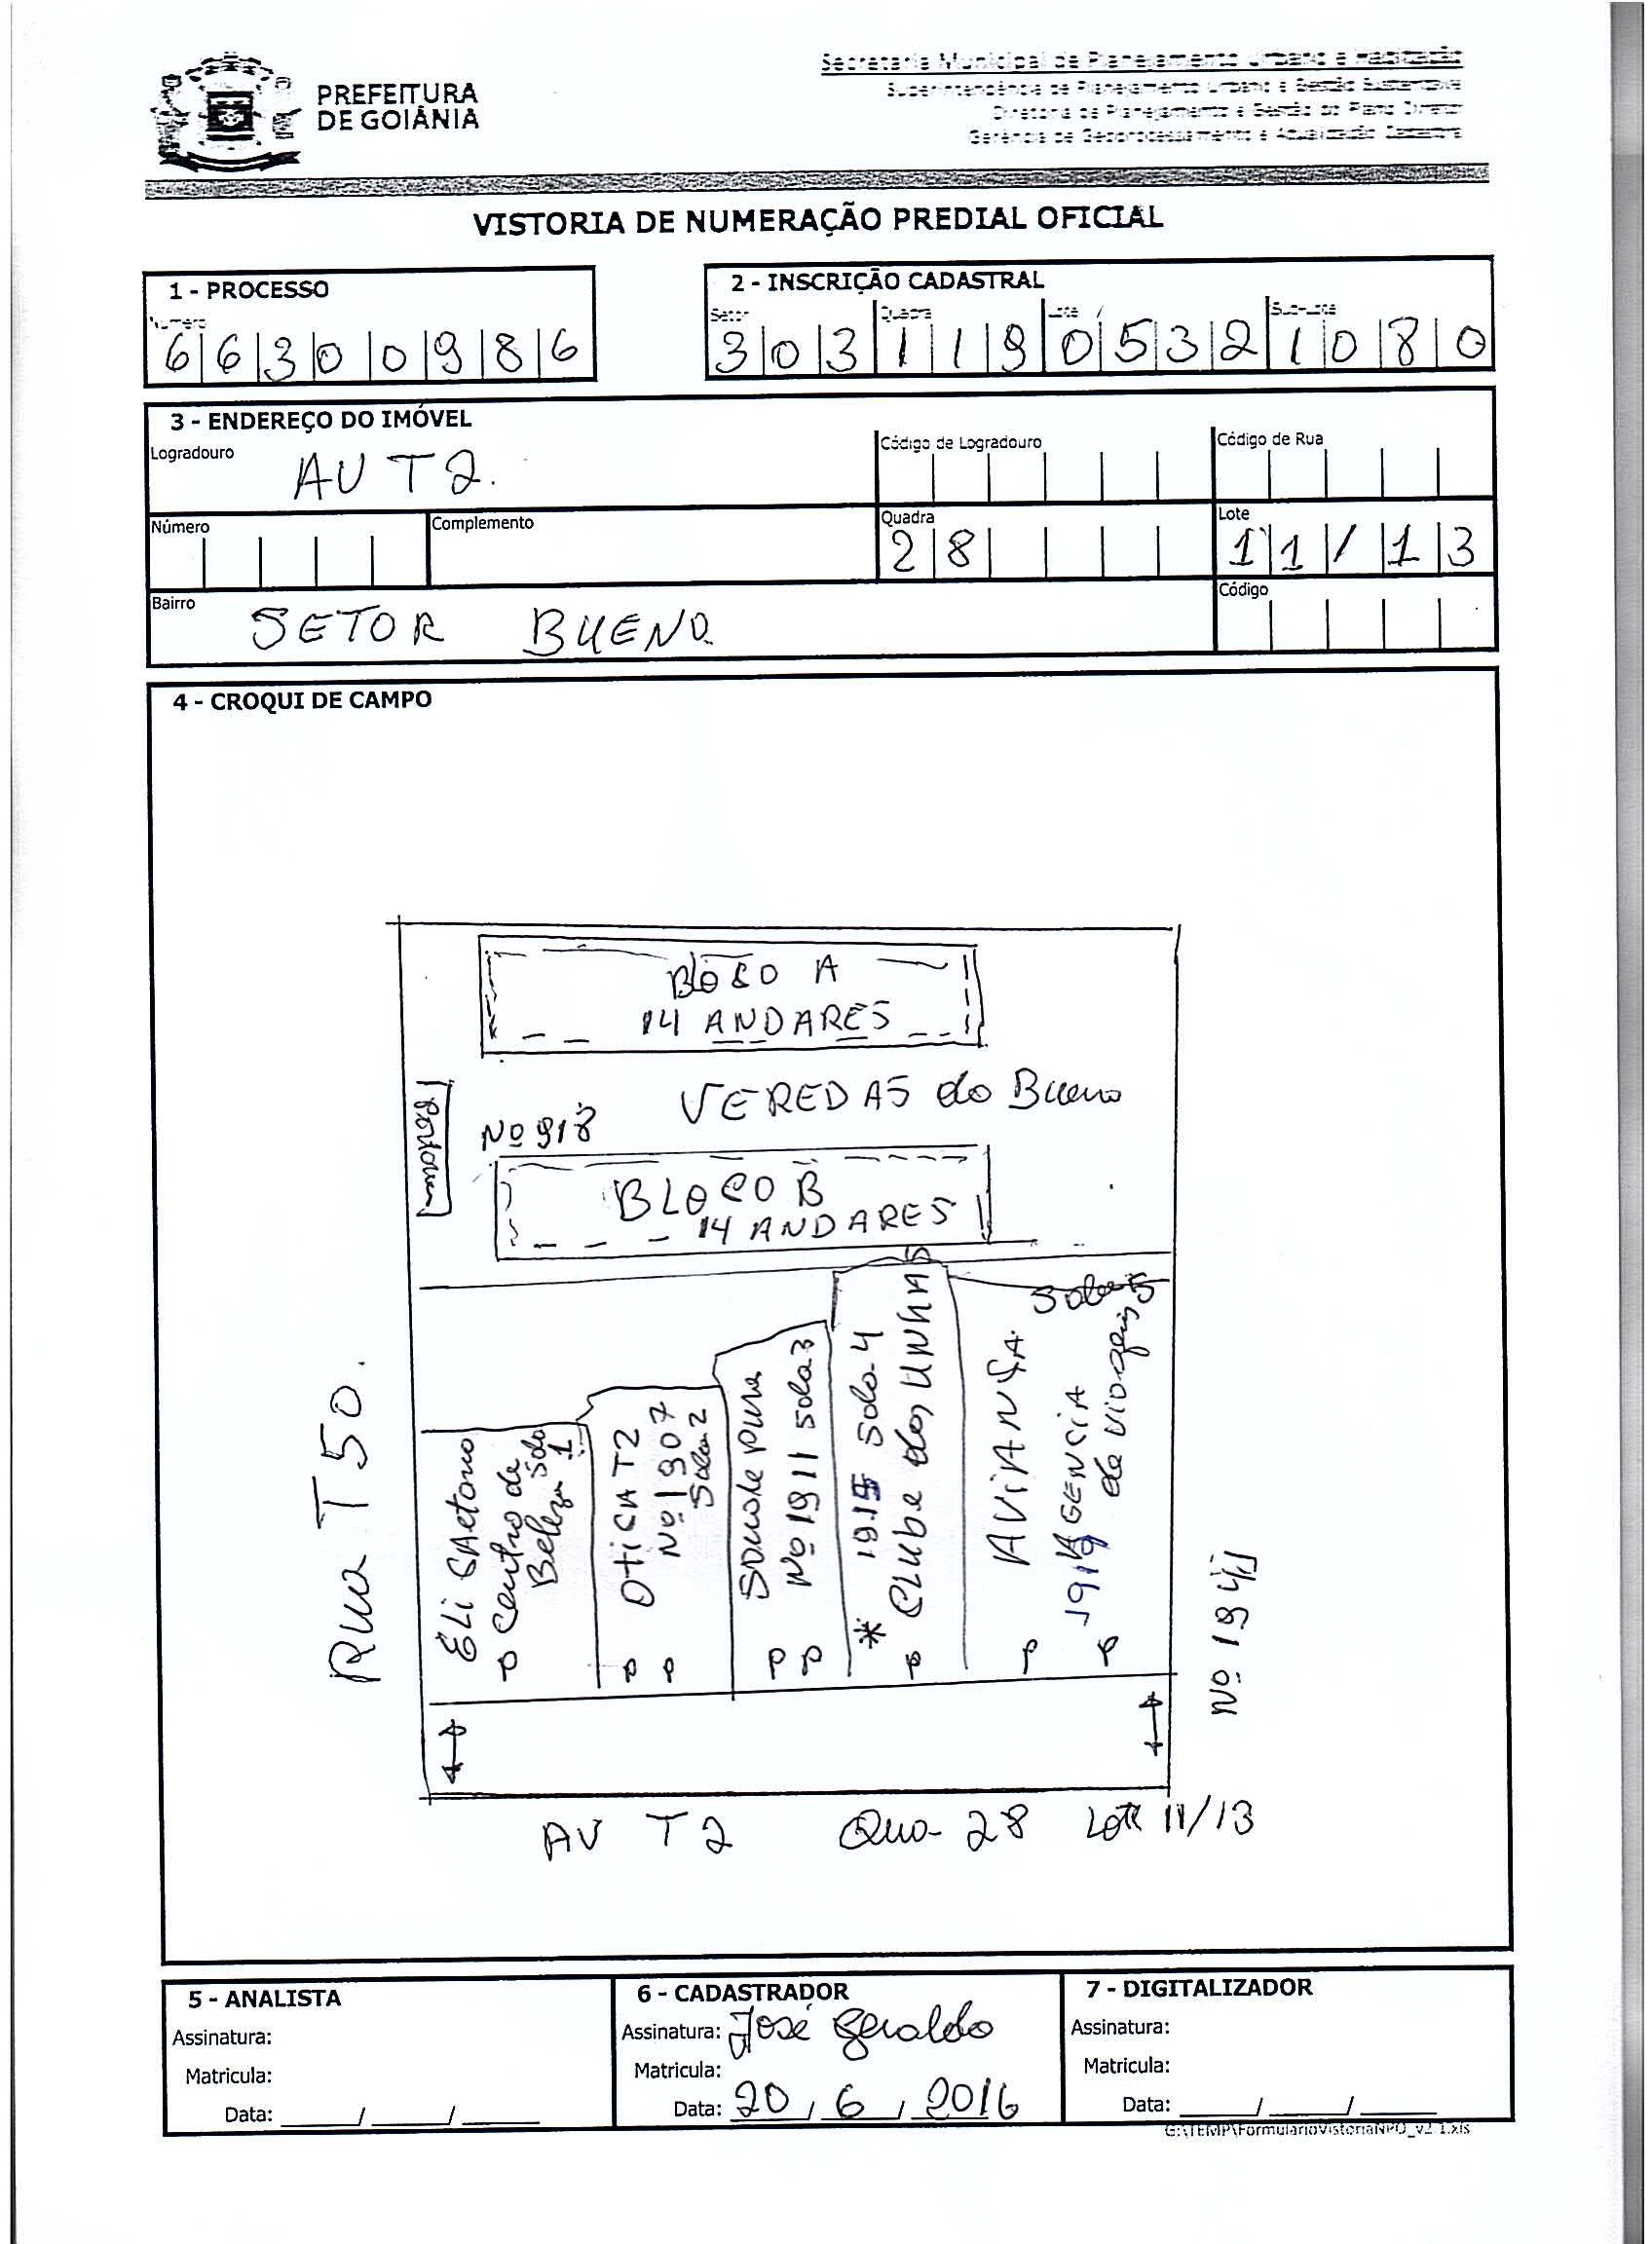 PREFEITURA
DE GOIÂNIA
Secretaria Municipal de Planejamento Urbano e Habitação
Superintendência de Planejamento Urbano e Gestão Sustentável
Diretoria de Planejamento e Gestão do Plano Diretor
Gerência de Geoprocessamento e Atualização Cadastral
VISTORIA DE NUMERAÇÃO PREDIAL OFICIAL
1 - PROCESSO
Número
66300986
2 - INSCRIÇÃO CADASTRAL
Setor Quadra Lote Sub-Lote
303 119 0532 1080
3 - ENDEREÇO DO IMÓVEL
Logradouro AV T2. Código de Logradouro Código de Rua
Número Complemento Quadra 28 Lote 11/13
Bairro SETOR BUENO Código
4 - CROQUI DE CAMPO
BLOCO A
14 ANDARES
VEREDAS do Bueno
Nº 918
BLOCO B
14 ANDARES
Rua T50.
ELi CAetano
Centro de
Beleza Sala 1
OtiCA T2
Nº 1907
Sala 2
Nº 1911 sala 3
* 1915 Sala 4
CLube das UNHAS
AViANÇA
AGENCiA
de Viagens
1919
Sala 5
AV T2 Qua- 28 Lote 11/13
5 - ANALISTA
Assinatura:
Matricula:
Data: ____/____/____
6 - CADASTRADOR
Assinatura: José Geraldo
Matricula:
Data: 20/6/2016
7 - DIGITALIZADOR
Assinatura:
Matricula:
Data: ____/____/____
G:\TEMP\FormularioVistoriaNPO_v2 1.xls